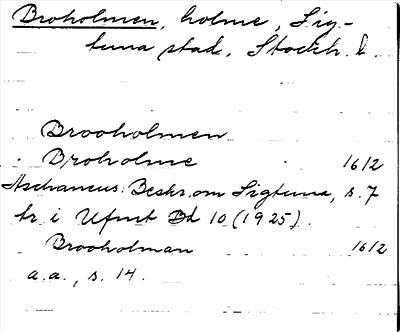 Broholmen, holme, Sig-
tuna stad, Stockh. l.
Brooholmen
Broholme 1612
Aschaneus: Beskr. om Sigtuna, s. 7
tr. i Ufmt Bd 10 (1925).
Brooholman 1612
a.a., s. 14.